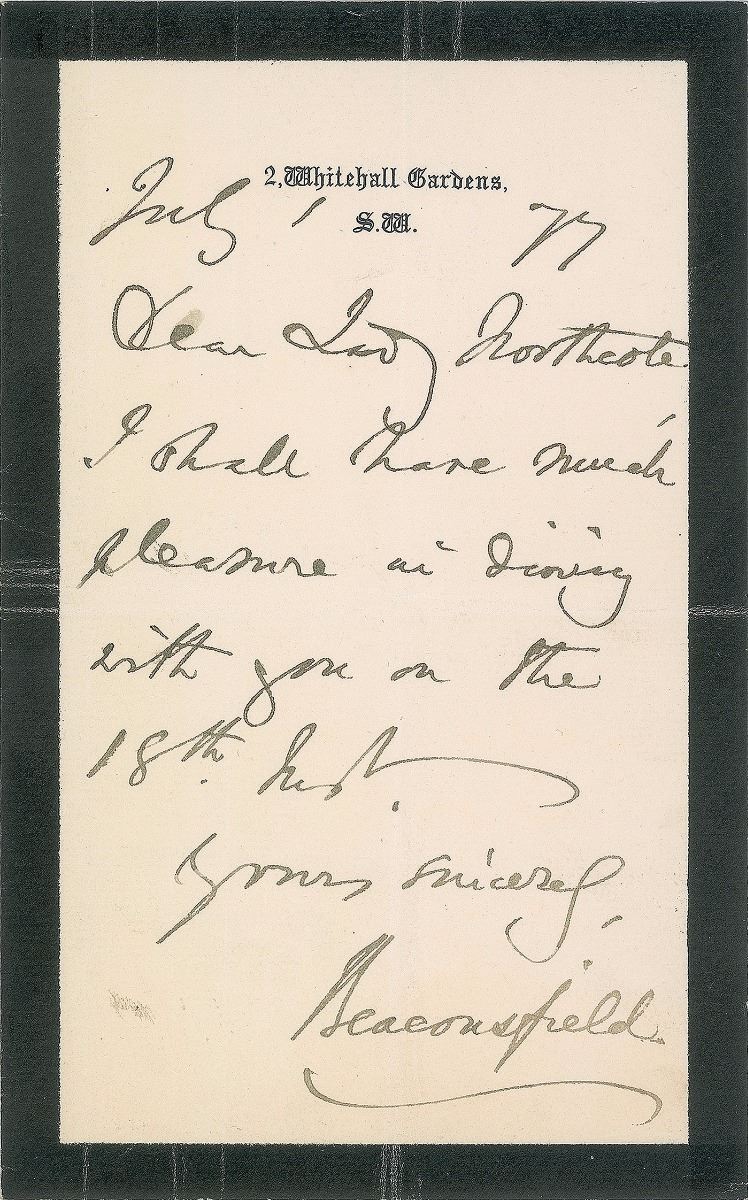 2, Whitehall Gardens,
S.W.
July 1 77
Dear Lady Northcote
I shall have much
pleasure in dining
with you on the
18th Inst.
yours sincerely,
Beaconsfield.